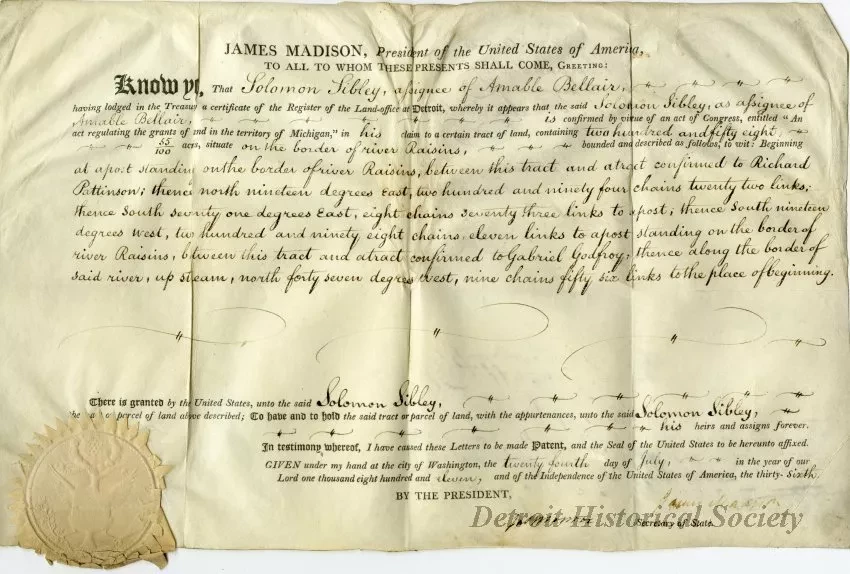 JAMES MADISON, President of the United States of America,
TO ALL TO WHOM THESE PRESENTS SHALL COME, GREETING:
Know y, That Solomon Sibley, assignee of Amable Bellair,
having lodged in the Treasury a certificate of the Register of the Land-office at Detroit, whereby it appears that the said Solomon Sibley, as assignee of
Amable Bellair, is confirmed by virtue of an act of Congress, entitled "An
act regulating the grants of and in the territory of Michigan," in his claim to a certain tract of land, containing two hundred and fifty eight,
55/100 acres, situate on the border of river Raisins, bounded and described as follows, to wit: Beginning
at a post standing on the border of river Raisins, between this tract and a tract confirmed to Richard
Pattinson; thence north nineteen degrees East, two hundred and ninety four chains twenty two links;
thence South seventy one degrees East, eight chains seventy three links to a post; thence South nineteen
degrees West, two hundred and ninety eight chains, eleven links to a post standing on the border of
river Raisins, between this tract and a tract confirmed to Gabriel Godfroy; thence along the border of
said river, up stream, north forty seven degrees West, nine chains fifty six links to the place of beginning.
There is granted by the United States, unto the said Solomon Sibley,
parcel of land above described; To have and to hold the said tract or parcel of land, with the appurtenances, unto the said Solomon Sibley,
his heirs and assigns forever.
In testimony whereof, I have caused these Letters to be made Patent, and the Seal of the United States to be hereunto affixed.
GIVEN under my hand at the city of Washington, the twenty fourth day of July, in the year of our
Lord one thousand eight hundred and eleven, and of the Independence of the United States of America, the thirty-sixth.
BY THE PRESIDENT,
Detroit Historical Society
Secretary of State.